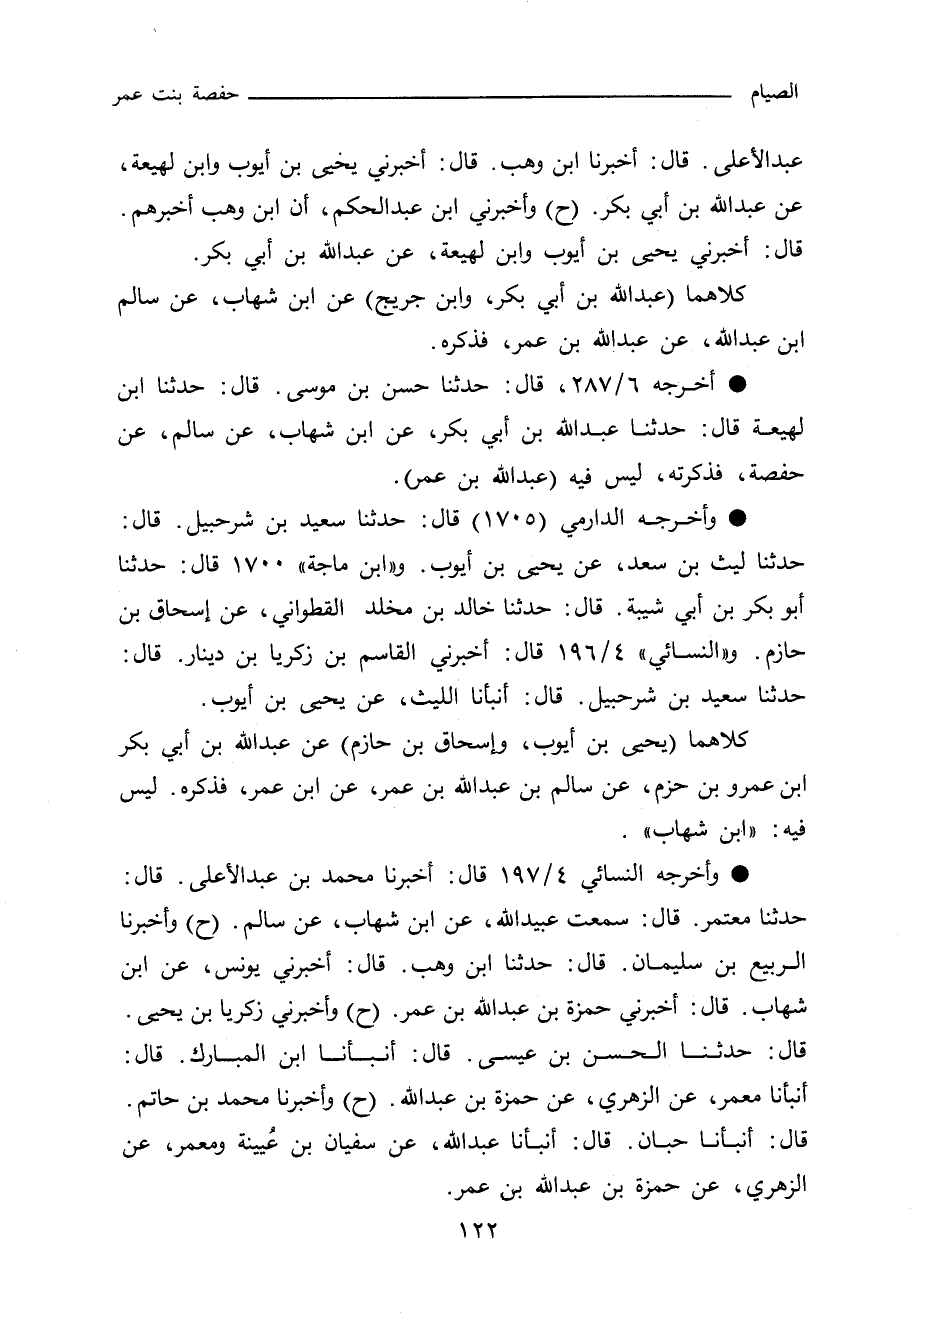 الصيام ــــــــــــــ حفصة بنت عمر
عبدالأعلى. قال: أخبرنا ابن وهب. قال: أخبرني يخيى بن أيوب وابن لهيعة،
عن عبدالله بن أبي بكر. (ح) وأخبرني ابن عبدالحكم، أن ابن وهب أخبرهم.
قال: أخبرني يحيى بن أيوب وابن لهيعة، عن عبدالله بن أبي بكر.
كلاهما (عبدالله بن أبي بكر، وابن جريج) عن ابن شهاب، عن سالم
ابن عبدالله، عن عبدالله بن عمر، فذكره.
● أخرجه ٢٨٧/٦، قال: حدثنا حسن بن موسى. قال: حدثنا ابن
لهيعة قال: حدثنا عبدالله بن أبي بكر، عن ابن شهاب، عن سالم، عن
حفصة، فذكرته، ليس فيه (عبدالله بن عمر).
● وأخرجه الدارمي (١٧٠٥) قال: حدثنا سعيد بن شرحبيل. قال:
حدثنا ليث بن سعد، عن يحيى بن أيوب. و«ابن ماجة» ١٧٠٠ قال: حدثنا
أبو بكر بن أبي شيبة. قال: حدثنا خالد بن مخلد القطواني، عن إسحاق بن
حازم. و«النسائي» ١٩٦/٤ قال: أخبرني القاسم بن زكريا بن دينار. قال:
حدثنا سعيد بن شرحبيل. قال: أنبأنا الليث، عن يحيى بن أيوب.
كلاهما (يحيى بن أيوب، وإسحاق بن حازم) عن عبدالله بن أبي بكر
ابن عمرو بن حزم، عن سالم بن عبدالله بن عمر، عن ابن عمر، فذكره. ليس
فيه: «ابن شهاب» .
● وأخرجه النسائي ١٩٧/٤ قال: أخبرنا محمد بن عبدالأعلى. قال:
حدثنا معتمر. قال: سمعت عبيدالله، عن ابن شهاب، عن سالم. (ح) وأخبرنا
الربيع بن سليمان. قال: حدثنا ابن وهب. قال: أخبرني يونس، عن ابن
شهاب. قال: أخبرني حمزة بن عبدالله بن عمر. (ح) وأخبرني زكريا بن يحيى.
قال: حدثنا الحسن بن عيسى. قال: أنبأنا ابن المبارك. قال:
أنبأنا معمر، عن الزهري، عن حمزة بن عبدالله. (ح) وأخبرنا محمد بن حاتم.
قال: أنبأنا حبان. قال: أنبأنا عبدالله، عن سفيان بن عُيينة ومعمر، عن
الزهري، عن حمزة بن عبدالله بن عمر.
١٢٢